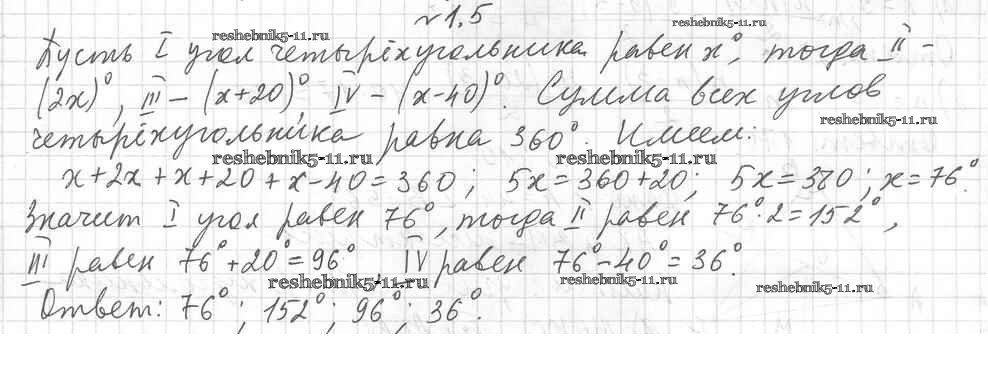 №1,5
reshebnik5-11.ru
reshebnik5-11.ru
Пусть I угол четырёхугольника равен x°, тогда II –
(2x)°, III – (x+20)° IV – (x-40)°. Сумма всех углов
reshebnik5-11.ru
reshebnik5-11.ru
четырёхугольника равна 360°. Имеем:
reshebnik5-11.ru
reshebnik5-11.ru
x+2x+x+20+x-40=360; 5x=360+20; 5x=380; x=76°.
Значит I угол равен 76°, тогда II равен 76°·2=152°,
III равен 76°+20°=96°, IV равен 76°-40°=36°.
reshebnik5-11.ru
reshebnik5-11.ru
reshebnik5-11.ru
Ответ: 76°; 152°; 96°; 36°.